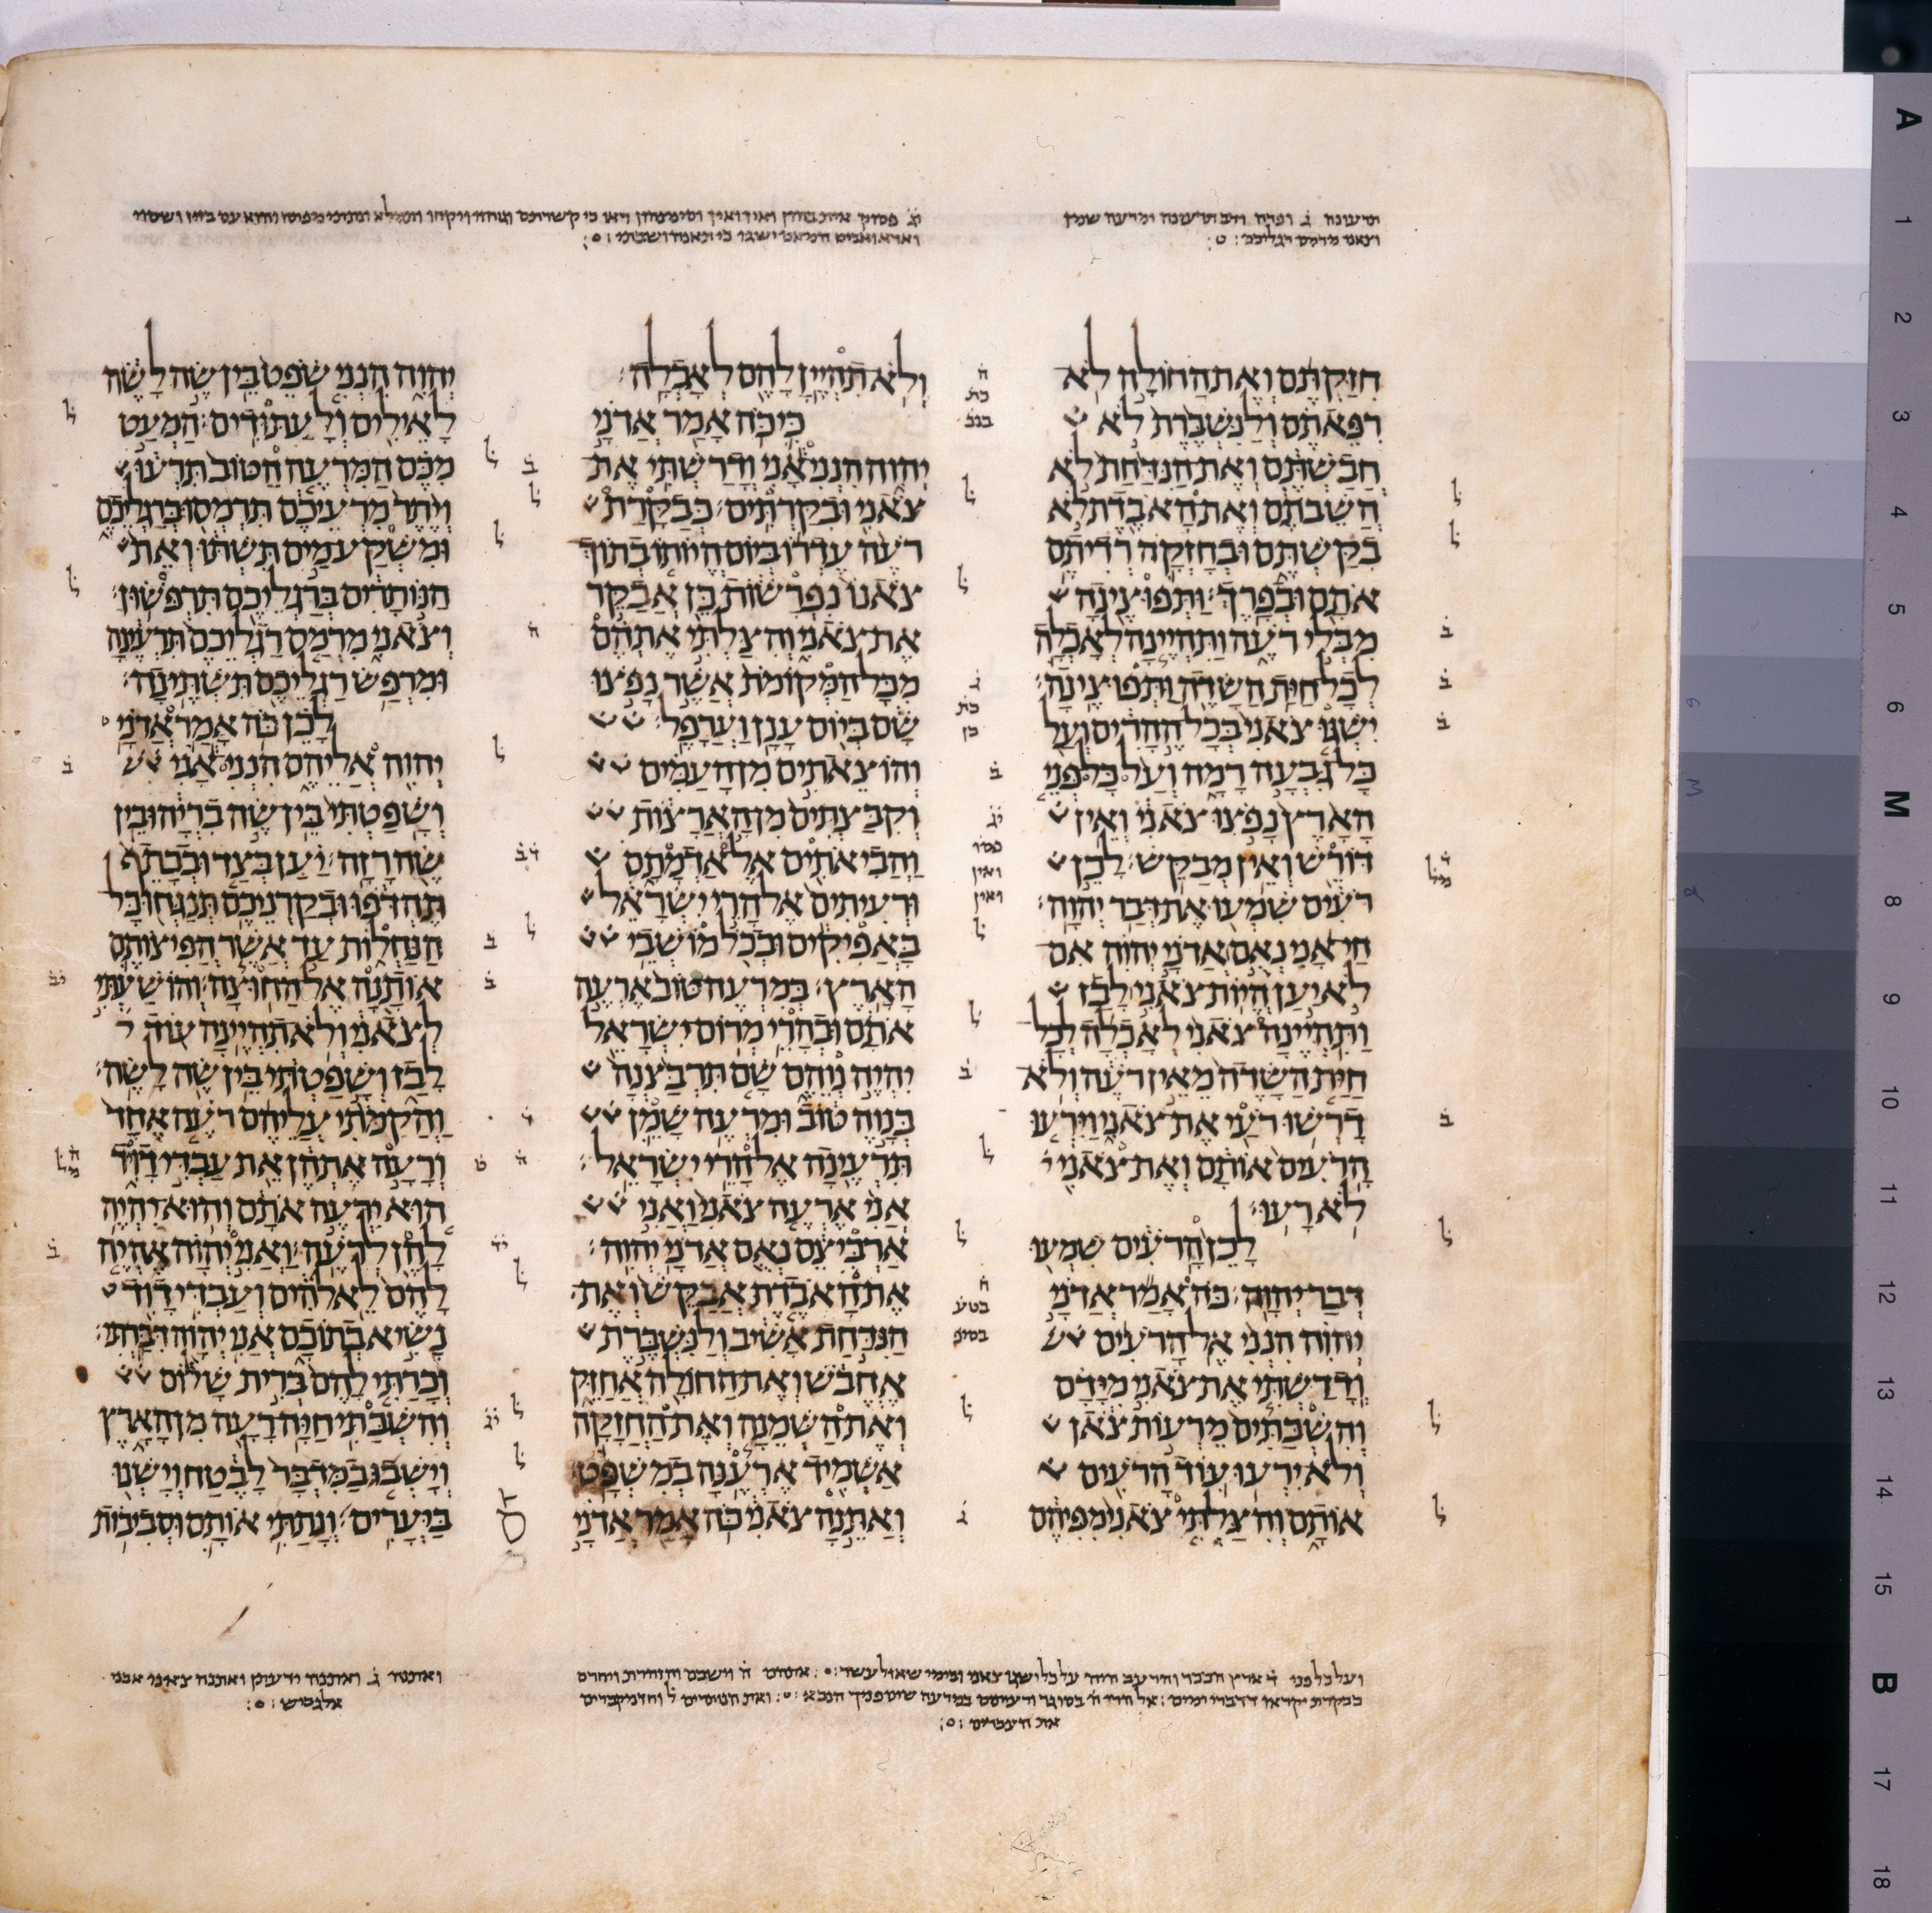 חִזַּקְתֶּם וְאֶת הַחוֹלָה לֹא
רִפֵּאתֶם וְלַנִּשְׁבֶּרֶת לֹא
חֲבַשְׁתֶּם וְאֶת הַנִּדַּחַת לֹא
הֲשֵׁבֹתֶם וְאֶת הָאֹבֶדֶת לֹא
בִקַּשְׁתֶּם וּבְחָזְקָה רְדִיתֶם
אֹתָם וּבְפָרֶךְ׃ וַתְּפוּצֶינָה
מִבְּלִי רֹעֶה וַתִּהְיֶינָה לְאָכְלָה
לְכָל חַיַּת הַשָּׂדֶה וַתְּפוּצֶינָה׃
יִשְׁגּוּ צֹאנִי בְּכָל הֶהָרִים וְעַל
כָּל גִּבְעָה רָמָה וְעַל כָּל פְּנֵי
הָאָרֶץ נָפֹצוּ צֹאנִי וְאֵין
דּוֹרֵשׁ וְאֵין מְבַקֵּשׁ׃ לָכֵן
רֹעִים שִׁמְעוּ אֶת דְּבַר יְהוָה׃
חַי אָנִי נְאֻם אֲדֹנָי יְהוִה אִם
לֹא יַעַן הֱיוֹת צֹאנִי לָבַז
וַתִּהְיֶינָה צֹאנִי לְאָכְלָה לְכָל
חַיַּת הַשָּׂדֶה מֵאֵין רֹעֶה וְלֹא
דָרְשׁוּ רֹעַי אֶת צֹאנִי וַיִּרְעוּ
הָרֹעִים אוֹתָם וְאֶת צֹאנִי
לֹא רָעוּ׃
לָכֵן הָרֹעִים שִׁמְעוּ
דְּבַר יְהוָה׃ כֹּה אָמַר אֲדֹנָי
יְהוִה הִנְנִי אֶל הָרֹעִים
וְדָרַשְׁתִּי אֶת צֹאנִי מִיָּדָם
וְהִשְׁבַּתִּים מֵרְעוֹת צֹאן
וְלֹא יִרְעוּ עוֹד הָרֹעִים
אוֹתָם וְהִצַּלְתִּי צֹאנִי מִפִּיהֶם
וְלֹא תִהְיֶיןָ לָהֶם לְאָכְלָה׃
כִּי כֹּה אָמַר אֲדֹנָי
יְהוִה הִנְנִי אָנִי וְדָרַשְׁתִּי אֶת
צֹאנִי וּבִקַּרְתִּים׃ כְּבַקָּרַת
רֹעֶה עֶדְרוֹ בְּיוֹם הֱיוֹתוֹ בְתוֹךְ
צֹאנוֹ נִפְרָשׁוֹת כֵּן אֲבַקֵּר
אֶת צֹאנִי וְהִצַּלְתִּי אֶתְהֶם
מִכָּל הַמְּקוֹמֹת אֲשֶׁר נָפֹצוּ
שָׁם בְּיוֹם עָנָן וַעֲרָפֶל׃
וְהוֹצֵאתִים מִן הָעַמִּים
וְקִבַּצְתִּים מִן הָאֲרָצוֹת
וַהֲבִיאֹתִים אֶל אַדְמָתָם
וּרְעִיתִים אֶל הָרֵי יִשְׂרָאֵל
בָּאֲפִיקִים וּבְכֹל מוֹשְׁבֵי
הָאָרֶץ׃ בְּמִרְעֶה טּוֹב אֶרְעֶה
אֹתָם וּבְהָרֵי מְרוֹם יִשְׂרָאֵל
יִהְיֶה נְוֵהֶם שָׁם תִּרְבַּצְנָה
בְּנָוֶה טּוֹב וּמִרְעֶה שָׁמֵן
תִּרְעֶינָה אֶל הָרֵי יִשְׂרָאֵל׃
אֲנִי אֶרְעֶה צֹאנִי וַאֲנִי
אַרְבִּיצֵם נְאֻם אֲדֹנָי יְהוִה׃
אֶת הָאֹבֶדֶת אֲבַקֵּשׁ וְאֶת
הַנִּדַּחַת אָשִׁיב וְלַנִּשְׁבֶּרֶת
אֶחֱבֹשׁ וְאֶת הַחוֹלָה אֲחַזֵּק
וְאֶת הַשְּׁמֵנָה וְאֶת הַחֲזָקָה
אַשְׁמִיד אֶרְעֶנָּה בְמִשְׁפָּט׃
וְאַתֵּנָה צֹאנִי כֹּה אָמַר אֲדֹנָי
יְהוִה הִנְנִי שֹׁפֵט בֵּין שֶׂה לָשֶׂה
לָאֵילִים וְלָעַתּוּדִים׃ הַמְעַט
מִכֶּם הַמִּרְעֶה הַטּוֹב תִּרְעוּ
וְיֶתֶר מִרְעֵיכֶם תִּרְמְסוּ בְּרַגְלֵיכֶם
וּמִשְׁקַע מַיִם תִּשְׁתּוּ וְאֵת
הַנּוֹתָרִים בְּרַגְלֵיכֶם תִּרְפֹּשׂוּן׃
וְצֹאנִי מִרְמַס רַגְלֵיכֶם תִּרְעֶינָה
וּמִרְפַּשׂ רַגְלֵיכֶם תִּשְׁתֶּינָה׃
לָכֵן כֹּה אָמַר אֲדֹנָי
יְהוִה אֲלֵיהֶם הִנְנִי אָנִי
וְשָׁפַטְתִּי בֵּין שֶׂה בִרְיָה וּבֵין
שֶׂה רָזָה׃ יַעַן בְּצַד וּבְכָתֵף
תֶּהְדֹּפוּ וּבְקַרְנֵיכֶם תְּנַגְּחוּ כָּל
הַנַּחְלוֹת עַד אֲשֶׁר הֲפִיצוֹתֶם
אוֹתָנָה אֶל הַחוּצָה׃ וְהוֹשַׁעְתִּי
לְצֹאנִי וְלֹא תִהְיֶינָה עוֹד
לָבַז וְשָׁפַטְתִּי בֵּין שֶׂה לָשֶׂה׃
וַהֲקִמֹתִי עֲלֵיהֶם רֹעֶה אֶחָד
וְרָעָה אֶתְהֶן אֵת עַבְדִּי דָוִיד
הוּא יִרְעֶה אֹתָם וְהוּא יִהְיֶה
לָהֶן לְרֹעֶה׃ וַאֲנִי יְהוָה אֶהְיֶה
לָהֶם לֵאלֹהִים וְעַבְדִּי דָוִד
נָשִׂיא בְתוֹכָם אֲנִי יְהוָה דִּבַּרְתִּי׃
וְכָרַתִּי לָהֶם בְּרִית שָׁלוֹם
וְהִשְׁבַּתִּי חַיָּה רָעָה מִן הָאָרֶץ
וְיָשְׁבוּ בַמִּדְבָּר לָבֶטַח וְיָשְׁנוּ
בַּיְּעָרִים׃ וְנָתַתִּי אוֹתָם וּסְבִיבוֹת